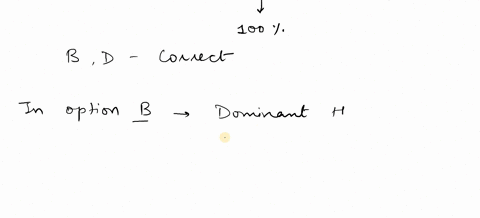 ↓
100 %.
B, D - Correct
In option B → Dominant H